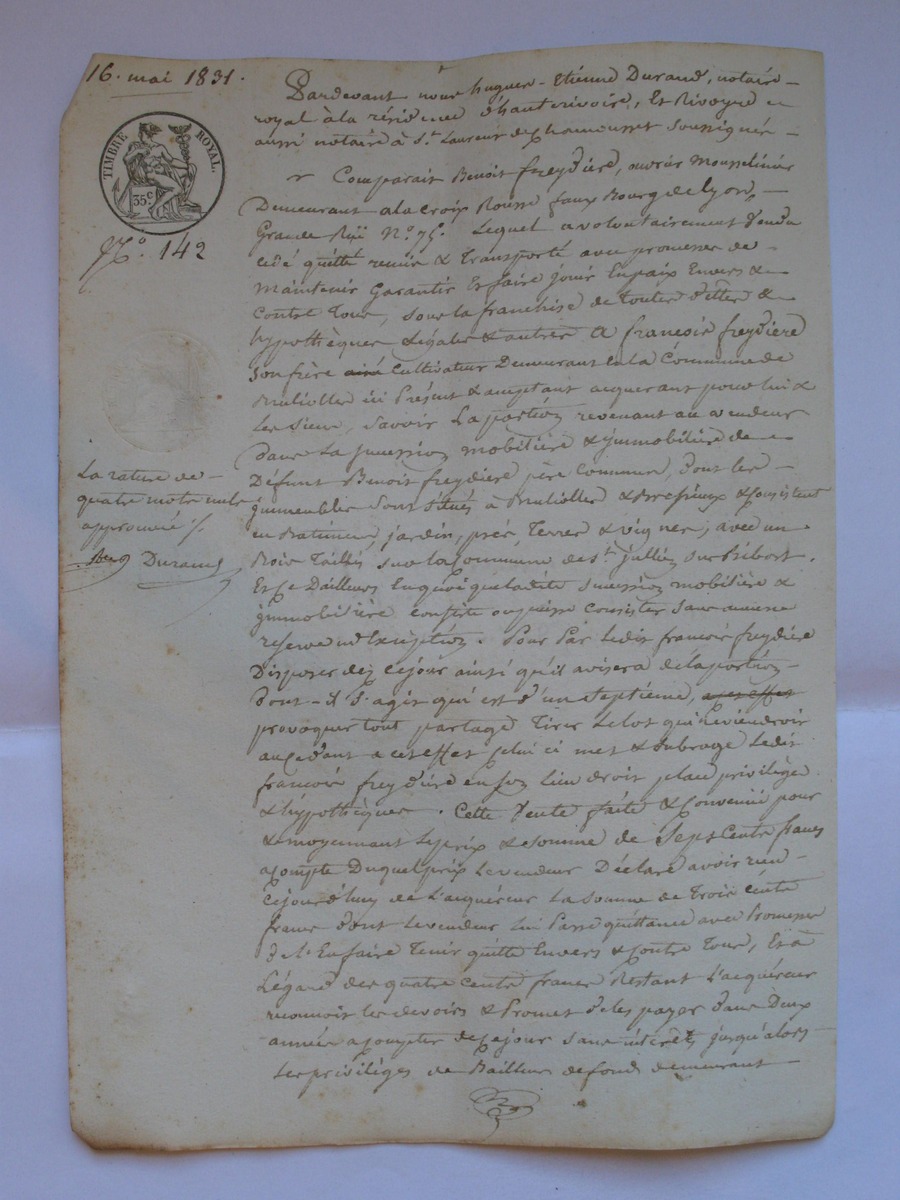 16. mai 1831.
TIMBRE ROYAL.
35 c
N.° 142
Pardevant nous hugues-Etienne Durand, notaire
royal à la résidence d'hauterivoire, Et Rivoyre
aussi notaire à S.t Laurent de chamousset soussignés
Comparait Benoit freydiere, ouvrier Mousselinier
Demeurant a la croix Rousse faux Bourg de lyon,
Grande Rue N.o 75. Lequel a volontairement vendu
cédé quitté remis & transporté avec promesses de
Maintenir Garantir Et faire jouir En paix Envers &
contre Tous, sous la franchise de toutes dettes &
hypothèques légales & autres A françois freydiere
Son frère ainé Cultivateur Demeurant en la Commune de
Brulioller ici Présent & acceptant acquérant pour lui &
Les siens, Savoir La portion revenant au vendeur
dans La succession mobilière & immobilière de
Défunt Benoit freydière père commun, dont les
immeubles sont situés à Brulioller & Bressieux & consistent
en Batiments, jardin, prés, Terres & vignes, avec un
Bois Taillis sur la Commune de S.t jullien sur Bibost.
Et ce D'ailleurs En quoi que ladite succession mobilière &
immobilière consiste ou puisse consister sans aucune
réserve ni Exception. Pour Par ledit françois freydière
Disposer dez ce jour ainsi qu'il avisera de la portion
dont-il S'agit qui est d'un Septième,
provoquer tout partage Tirer Le lot qui reviendroit
au cedant a cet effet celui ci met & subroge Ledit
françois freydière en son lieu droit place privilège
& hypothèques. Cette Vente faite & Convenue pour
& moyennant Le prix & somme de Sept Cents francs
a compte Duquel prix Le vendeur Déclare avoir reçu
Ce jour d'huy de L'acquéreur La somme de Trois cents
francs dont Le vendeur lui Passe quittance avec Promesses
de l'En faire Tenir quitte Envers & Contre Tous, Et à
L'égard des quatre cents francs Restant L'acquéreur
reconnoit les devoirs & Promet de les payer dans Deux
années a compter de ce jour sans intérêts jusqu'alors
Les privilèges de Bailleur de fonds demeurant
La rature de
quatre mots nuls
approuvé ./.
Durand